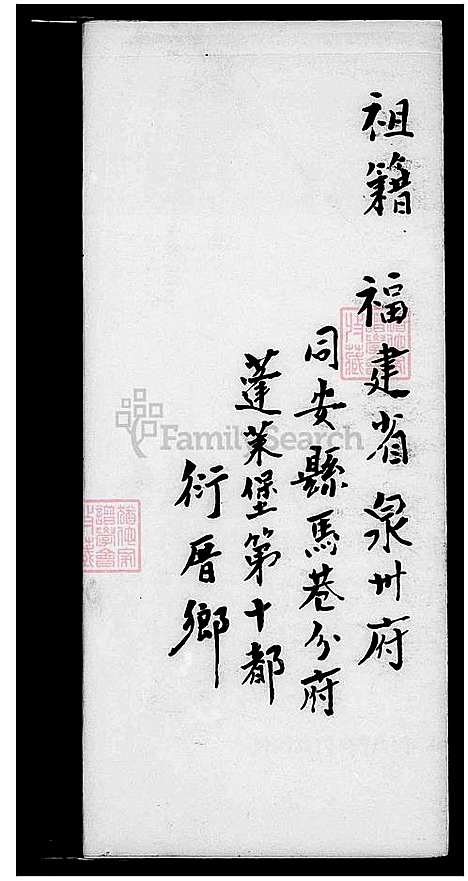 祖籍 福建省泉州府
同安縣馬巷分府
蓬萊堡第十都
衍厝鄉
FamilySearch